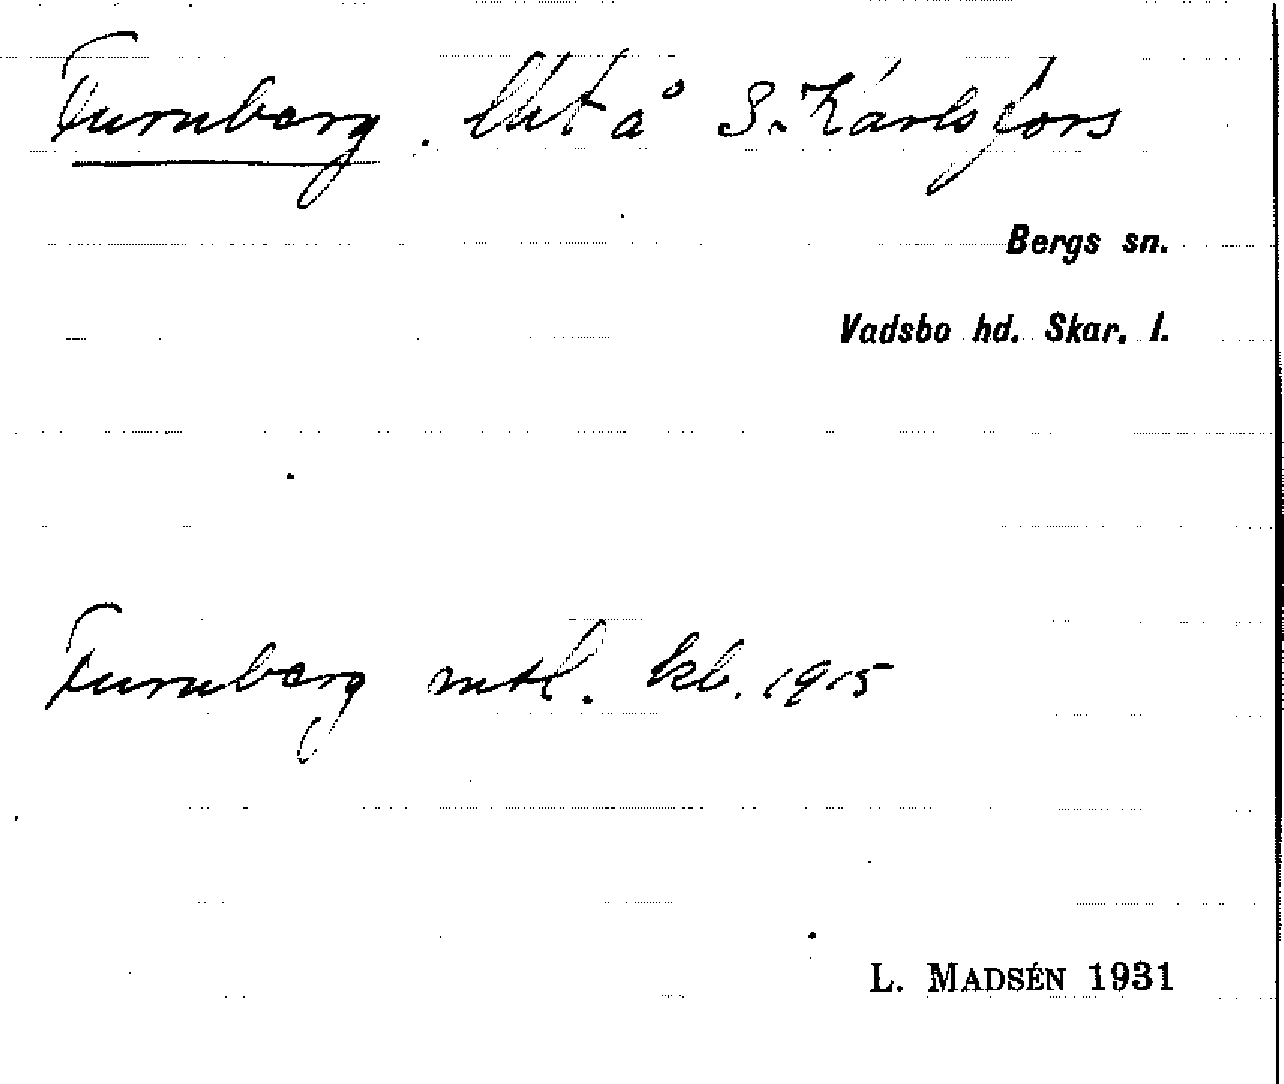 Furuberg. Lht å S. Karlsfors
Bergs sn.
Vadsbo hd. Skar. l.
Furuberg mtl. kb. 1915
L. MADSÉN 1931